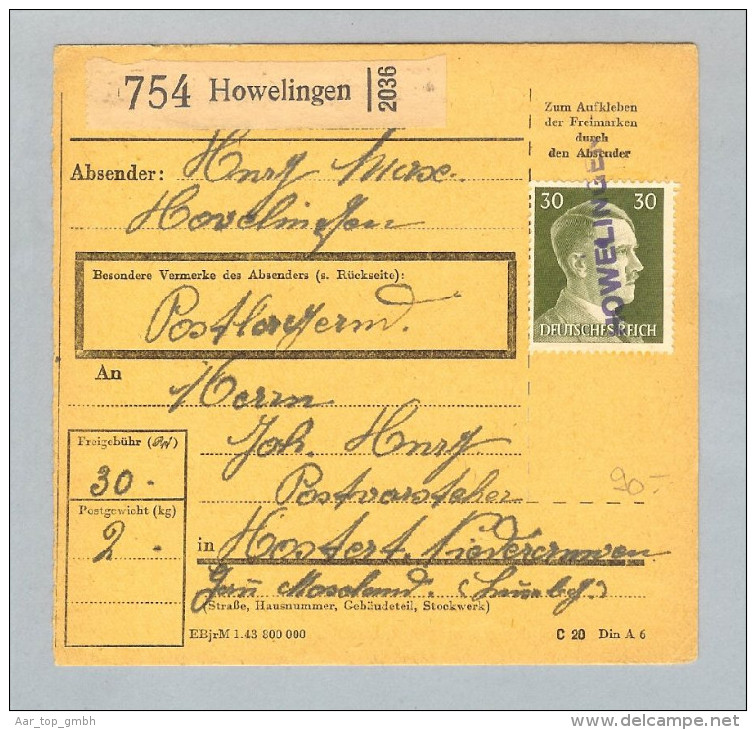 754 Howelingen 2036
Zum Aufkleben
der Freimarken
durch
den Absender
Absender: Hury Max.
Hovelingen
30 30
DEUTSCHES REICH
HOWELINGEN
Besondere Vermerke des Absenders (s. Rückseite):
Postlagernd.
An
Herrn
Joh. Hury
Postvorsteher
Freigebühr (RM)
30.
Postgewicht (kg)
2.
90.-
in Hostert, Niederanven
Gau Moselland. (Luxbg.)
(Straße, Hausnummer, Gebäudeteil, Stockwerk)
EBjrM 1.43 800 000
C 20 Din A 6
Aar_top_gmbh
www.delcampe.net